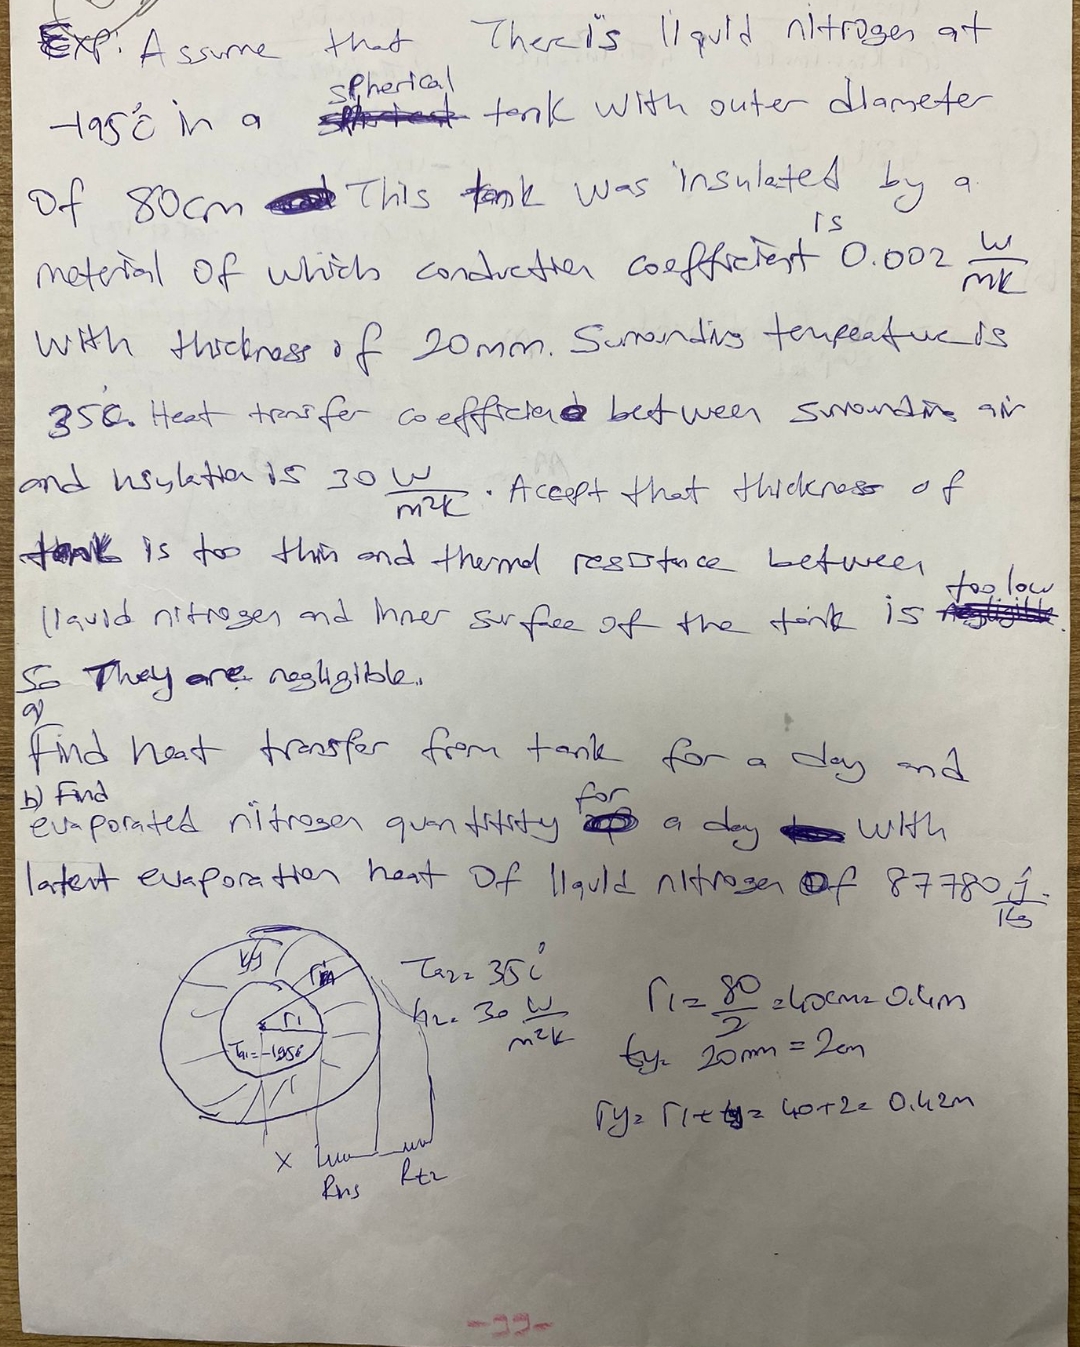 Exp: Assume that There is liquid nitrogen at
-195°C in a spherical tank with outer diameter
of 80cm This tank was insulated by a
material of which conduction coefficient is 0.002 W/mK
with thickness of 20mm. Surrounding tempeature is
35°C. Heat transfer coefficient between surrounding air
and insulation is 30 W/m²K. Accept that thickness of
tank is too thin and thermal resistance between
liquid nitrogen and inner surface of the tank is too low
So They are negligible.
a)
find heat transfer from tank for a day and
b) Find
evaporated nitrogen quantitity for a day with
latent evaporation heat of liquid nitrogen of 87780 j/kg.
Ta2 = 35°C
h2 = 30 W/m²K
r1 = 80/2 = 40cm = 0.4m
ty = 20mm = 2cm
ry = r1 + ty = 40+2 = 0.42m
ky
r1
Ta1 = -195°C
X
Rıns
Rt2
-99-